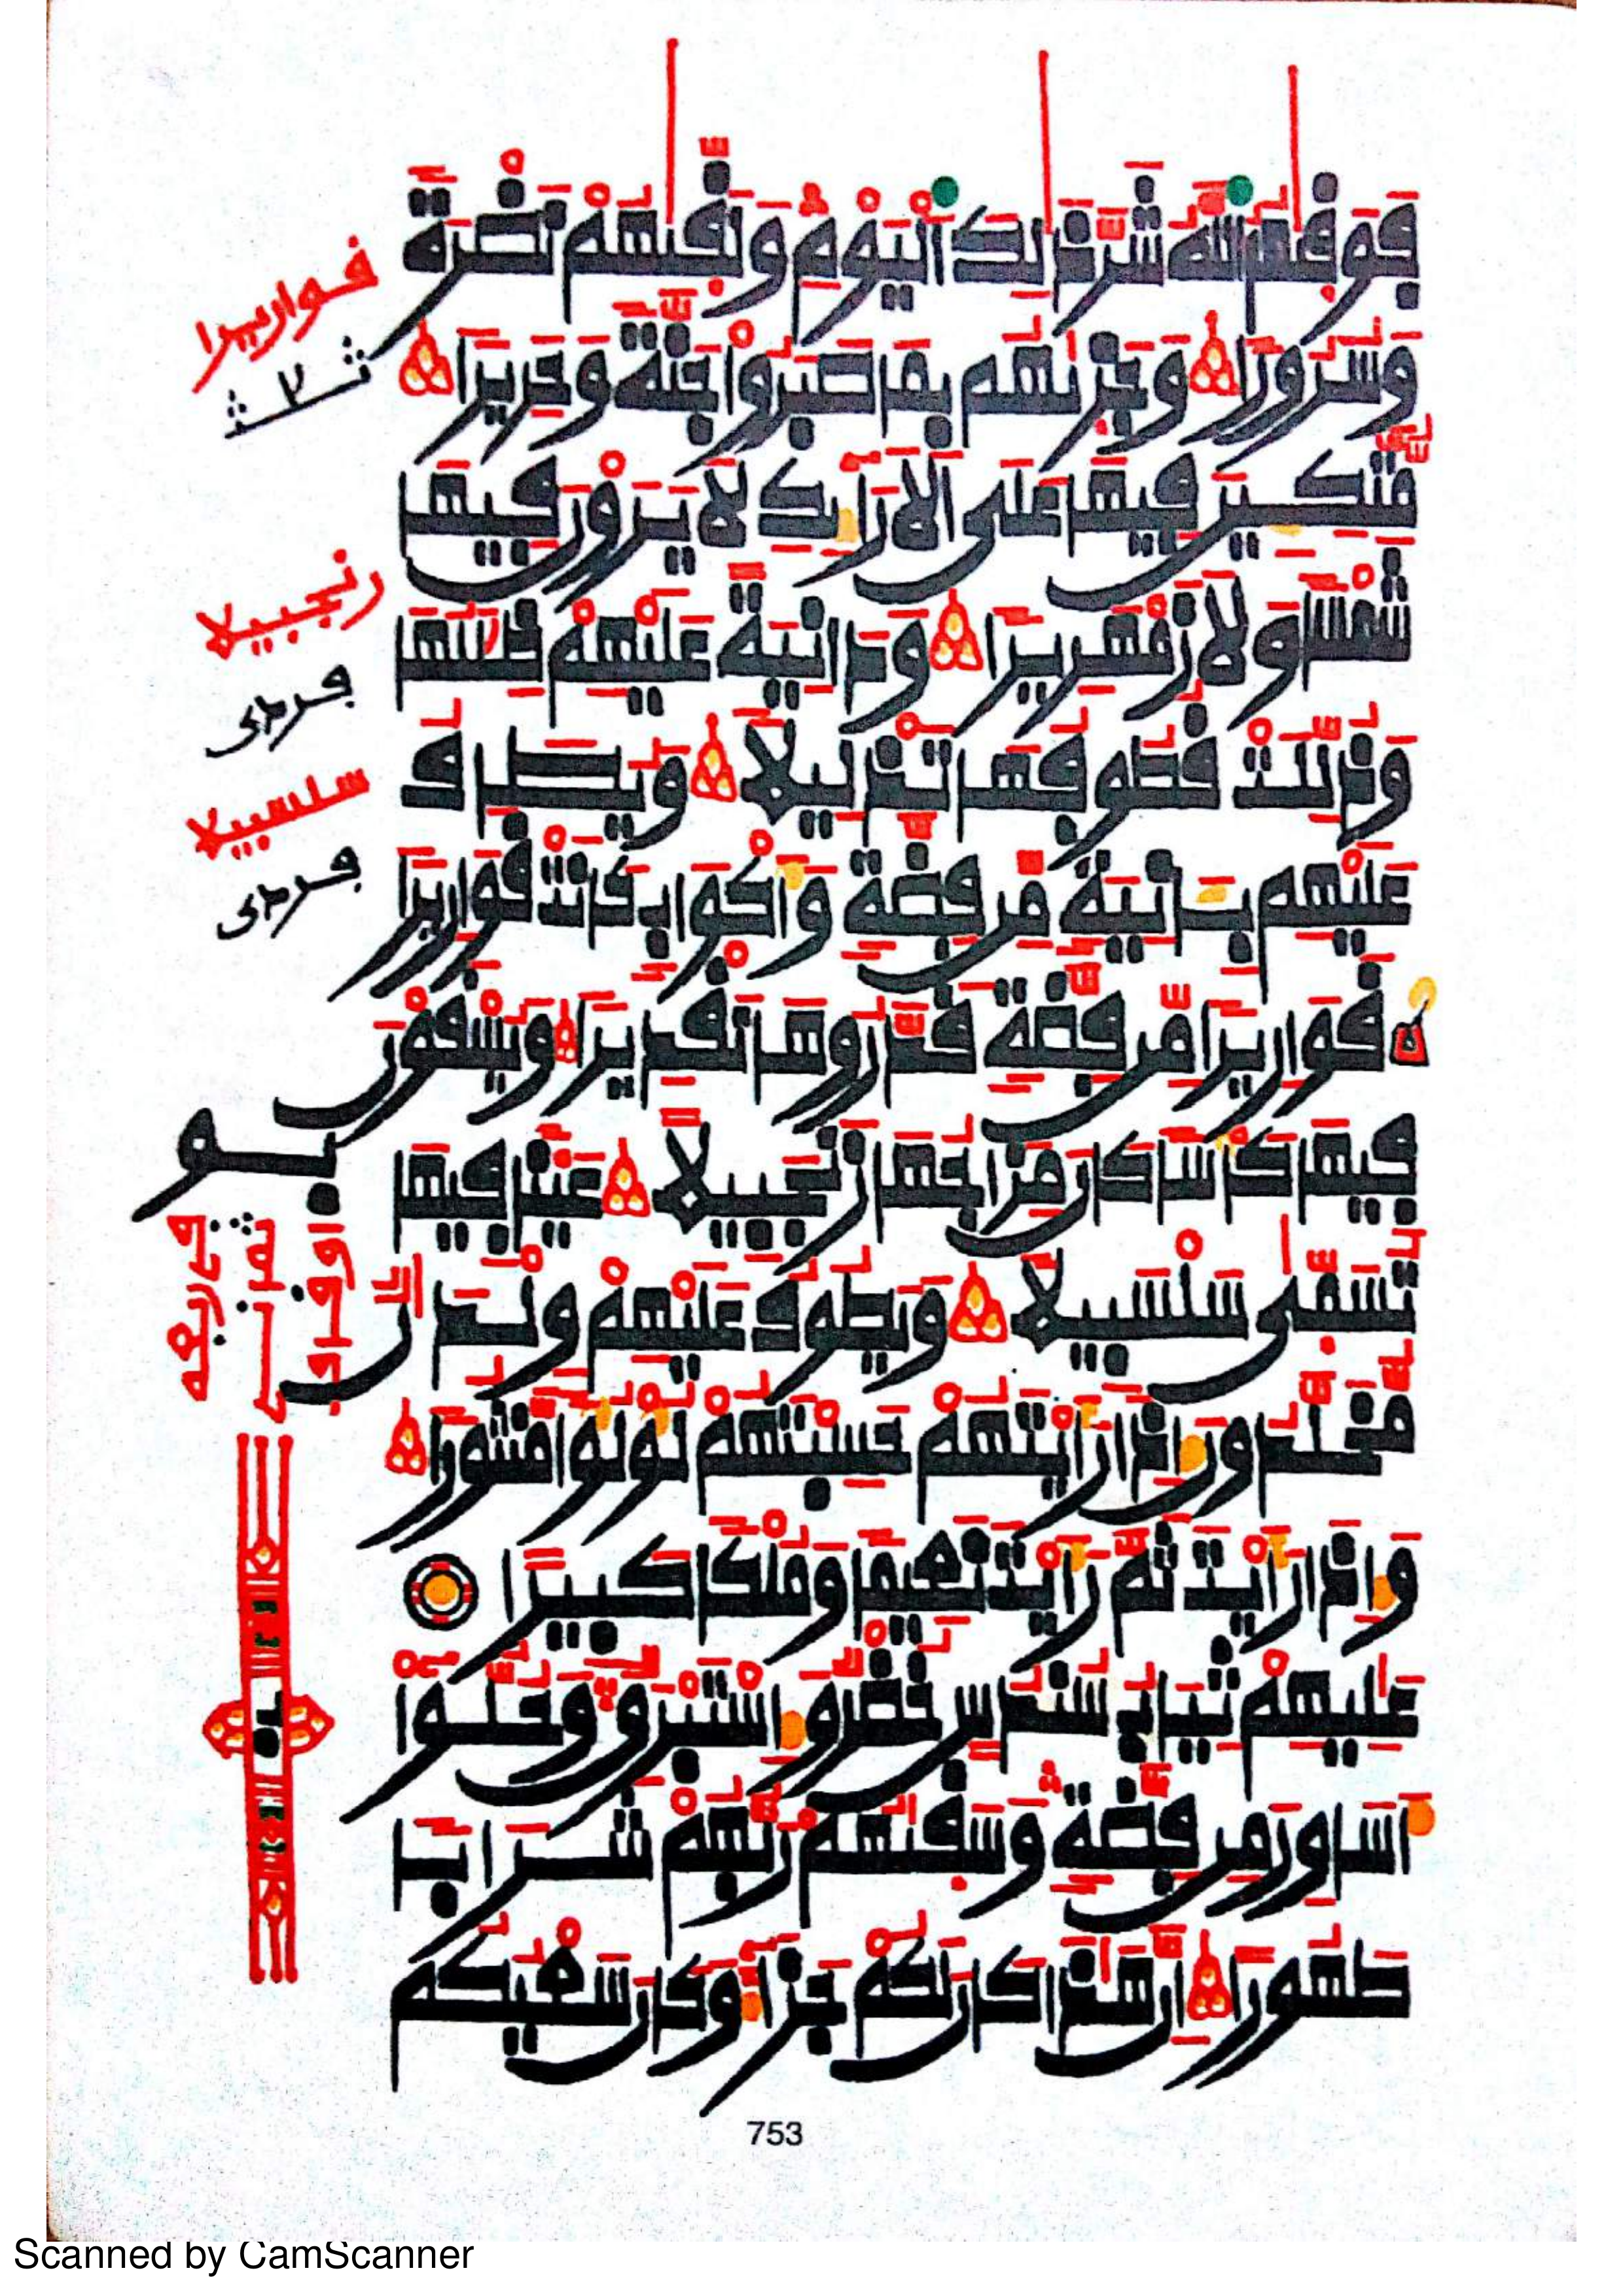 فَوَقَىٰهُمُ ٱللَّهُ شَرَّ ذَٰلِكَ ٱلْيَوْمِ وَلَقَّىٰهُمْ نَضْرَةً
وَسُرُورًا وَجَزَىٰهُم بِمَا صَبَرُوا۟ جَنَّةً وَحَرِيرًا
مُتَّكِـِٔينَ فِيهَا عَلَى ٱلْأَرَآئِكِ لَا يَرَوْنَ فِيهَا
شَمْسًا وَلَا زَمْهَرِيرًا وَدَانِيَةً عَلَيْهِمْ ظِلَٰلُهَا
وَذُلِّلَتْ قُطُوفُهَا تَذْلِيلًا وَيُطَافُ
عَلَيْهِم بِـَٔانِيَةٍ مِّن فِضَّةٍ وَأَكْوَابٍ كَانَتْ قَوَارِيرًا
قَوَارِيرًا مِّن فِضَّةٍ قَدَّرُوهَا تَقْدِيرًا وَيُسْقَوْنَ
فِيهَا كَأْسًا كَانَ مِزَاجُهَا زَنجَبِيلًا عَيْنًا فِيهَا
تُسَمَّىٰ سَلْسَبِيلًا وَيَطُوفُ عَلَيْهِمْ وِلْدَٰنٌ
مُّخَلَّدُونَ إِذَا رَأَيْتَهُمْ حَسِبْتَهُمْ لُؤْلُؤًا مَّنثُورًا
وَإِذَا رَأَيْتَ ثَمَّ رَأَيْتَ نَعِيمًا وَمُلْكًا كَبِيرًا
عَٰلِيهِمْ ثِيَابُ سُندُسٍ خُضْرٌ وَإِسْتَبْرَقٌ وَحُلُّوٓا۟
أَسَاوِرَ مِن فِضَّةٍ وَسَقَىٰهُمْ رَبُّهُمْ شَرَابًا
طَهُورًا إِنَّ هَٰذَا كَانَ لَكُمْ جَزَآءً وَكَانَ سَعْيُكُم
قواريرا
زنجبيلا
سلسبيلا
753
Scanned by CamScanner